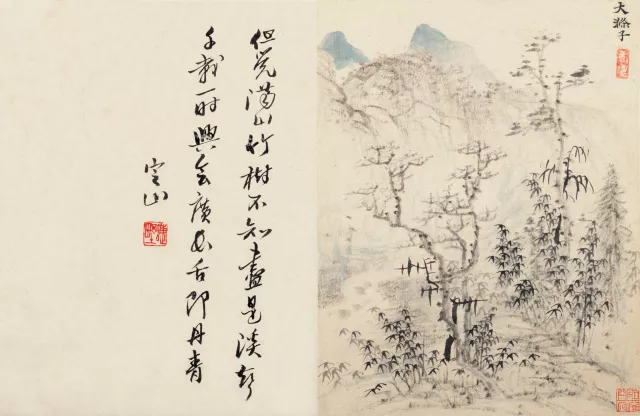 大滌子
但覺滿山竹樹不知盡是溪聲
千載一時興會廣長舌即丹青
定山